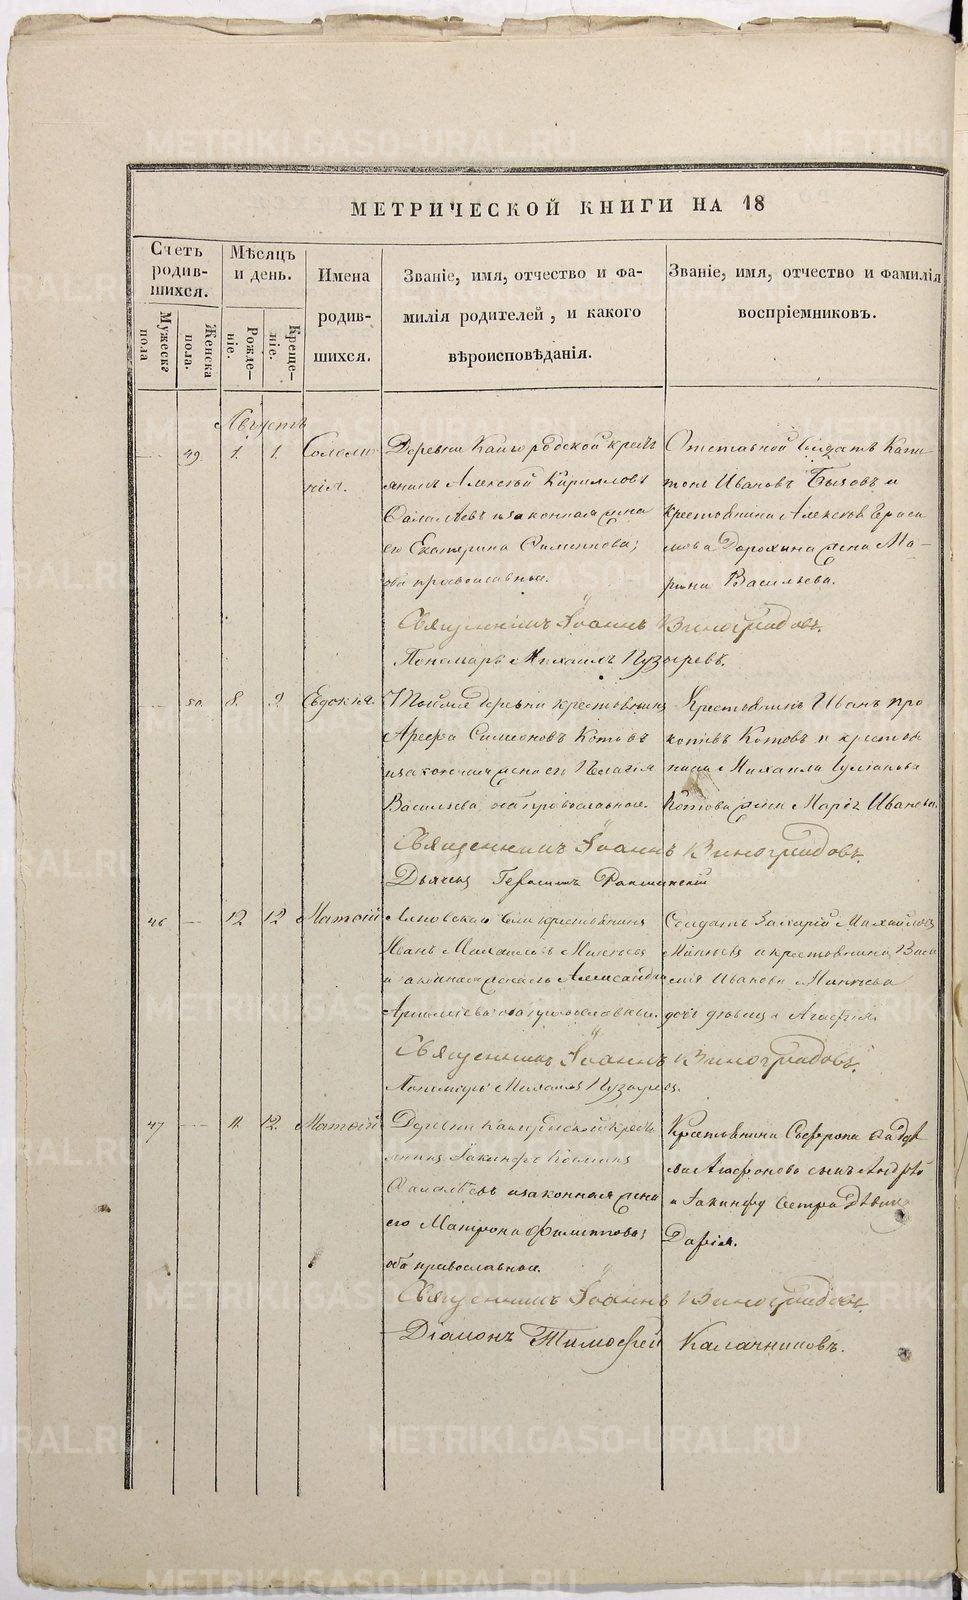 МЕТРИЧЕСКОЙ КНИГИ НА 18
Счетъ родив-шихся.
Мужеска пола
Женска пола.
Мѣсяцъ и день.
Рожде-ніе.
Креще-ніе.
Имена родив-шихся.
Званіе, имя, отчество и фа-
милія родителей, и какого
вѣроисповѣданія.
Званіе, имя, отчество и фамилія
воспріемниковъ.
Августъ
49 1. 1. Соломо-
нія.
Деревни Кайгородской кресть
янинъ Алексѣй Кирилловъ
и законная жена
его Екатерина Симеонова;
оба православные.
Отставной Солдатъ Капи-
тонъ Ивановъ Бызовъ и
крестьянина Алексѣя Гераси
мова Дорохина жена Ма-
рина Васильева.
Священникъ Іоаннъ Виноградовъ.
Пономарь Михаилъ Пузыревъ.
50. 8. 9. Евдокія.
Тойже деревни крестьянинъ
Арефа Симеоновъ Котовъ
и законная жена его Пелагія
Васильева оба православные.
Крестьянинъ Иванъ Про
копьевъ Котовъ и крестья
нина Михаила
Котова жена Марія Иванова.
Священникъ Іоаннъ Виноградовъ.
Дьячекъ Герасимъ
46 12 12 Матѳій
крестьянинъ
Иванъ Михайловъ
и законная жена его Александра
оба православные.
Солдатъ Захарій Михайловъ
и крестьянина Васи
лія Иванова
дочь дѣвица Агафія.
Священникъ Іоаннъ Виноградовъ.
Пономарь Михаилъ Пузыревъ.
47 11. 12. Матѳій
Деревни Кайгородской кресть
янинъ Іакинфъ Козминъ
и законная жена
его Матрона Филиппова;
оба православные.
Крестьянина Сафрона
Агафонова сынъ Андрей
и Іакинфа сестра дѣвица
Дарія.
Священникъ Іоаннъ Виноградовъ.
Діаконъ Тимофей Калачниковъ.
METRIKI.GASO-URAL.RU